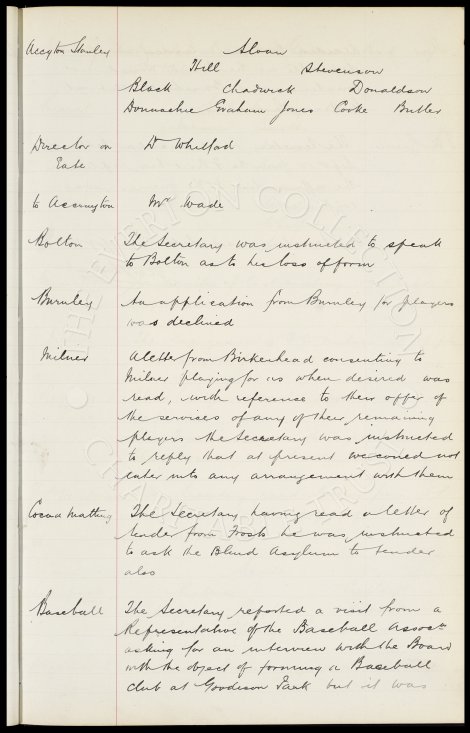 Accrton Stanley Sloan
Hill Stevenson
Black Chadwick Donaldson
Donnachie Graham Jones Cooke Butler
Director on Dr Whitford
Gate
to Accrington Mr Wade
Bolton The Secretary was instructed to speak
to Bolton as to his loss of form
Burnley An application from Burnley for players
was declined
Milner A letter from Birkenhead consenting to
Milner playing for us when desired was
read, with reference to their offer of
the services of any of their remaining
players the Secretary was instructed
to reply that at present we could not
enter into any arrangement with them
Cocoa Matting The Secretary having read a letter of
tender from Frosts he was instructed
to ask the Blind Asylum to tender
also
Baseball The Secretary reported a visit from a
Representative of the Baseball Assocn
asking for an interview with the Board
with the object of forming a Baseball
club at Goodison Park but it was
THE EVERTON COLLECTION
CHARITABLE TRUST